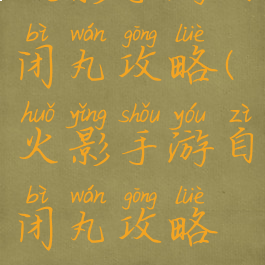 bì wán gōng lüè
闭丸攻略(
huǒ yǐng shǒu yóu zì
火影手游自
bì wán gōng lüè
闭丸攻略